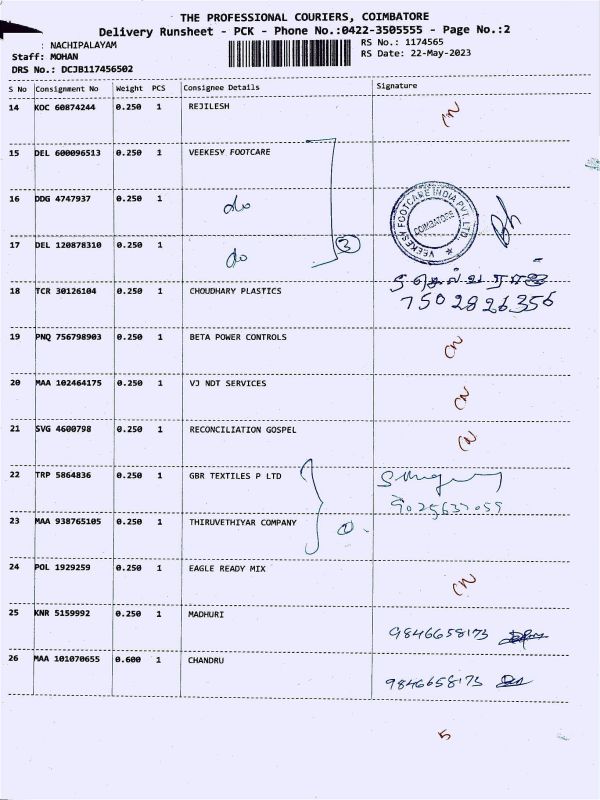 THE PROFESSIONAL COURIERS, COIMBATORE
Delivery Runsheet - PCK - Phone No.:0422-3505555 - Page No.:2
: NACHIPALAYAM
Staff: MOHAN
DRS No.: DCJB117456502
RS No.: 1174565
RS Date: 22-May-2023
S No Consignment No Weight PCS Consignee Details Signature
14 KOC 60874244 0.250 1 REJILESH CN
15 DEL 600096513 0.250 1 VEEKESY FOOTCARE
16 DDG 4747937 0.250 1 do
VEEKESY FOOTCARE INDIA PVT. LTD.
COIMBATORE
17 DEL 120878310 0.250 1 do 3
18 TCR 30126104 0.250 1 CHOUDHARY PLASTICS 7502826356
19 PNQ 756798903 0.250 1 BETA POWER CONTROLS CN
20 MAA 102464175 0.250 1 VJ NDT SERVICES CN
21 SVG 4600798 0.250 1 RECONCILIATION GOSPEL CN
22 TRP 5864836 0.250 1 GBR TEXTILES P LTD
23 MAA 938765105 0.250 1 THIRUVETHIYAR COMPANY
24 POL 1929259 0.250 1 EAGLE READY MIX CN
25 KNR 5159992 0.250 1 MADHURI 9846658173
26 MAA 101070655 0.600 1 CHANDRU 9846658173
5